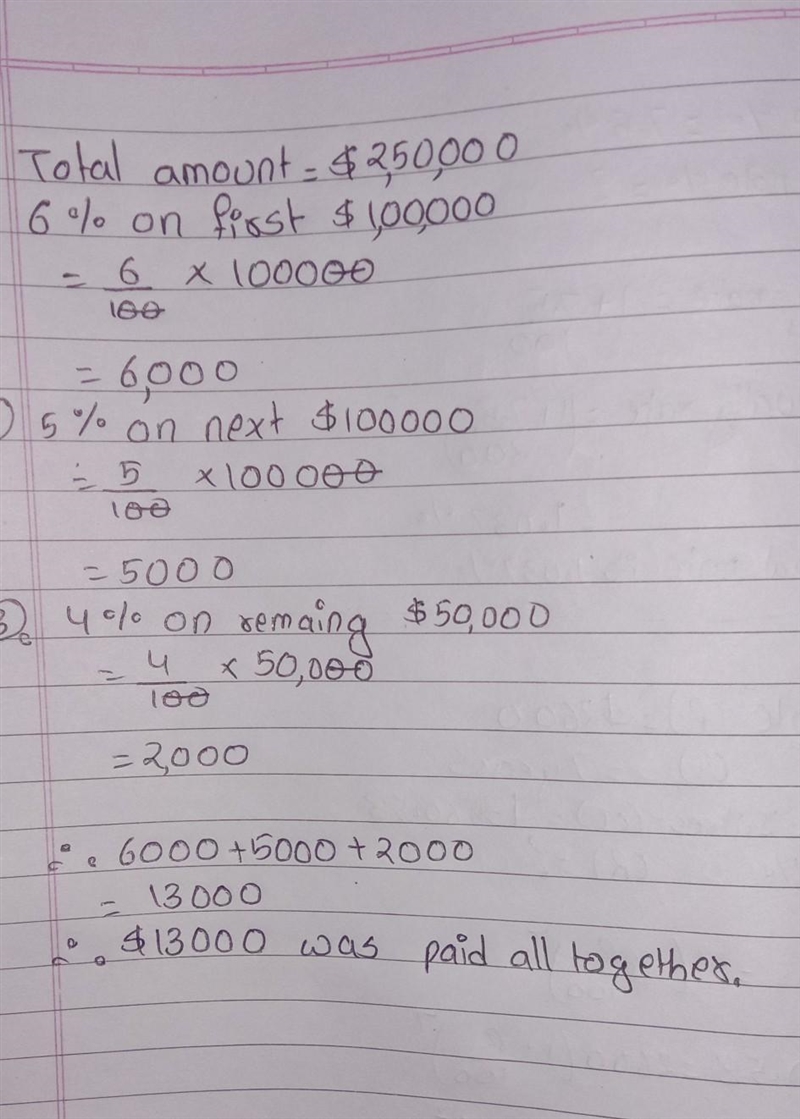 Total amount = $2,50,000
6% on first $1,00,000
= 6/100 × 100000
= 6,000
) 5% on next $100000
= 5/100 × 100000
= 5000
3) 4% on remaing $50,000
= 4/100 × 50,000
= 2,000
∴ 6000+5000+2000
= 13000
∴ $13000 was paid all together.